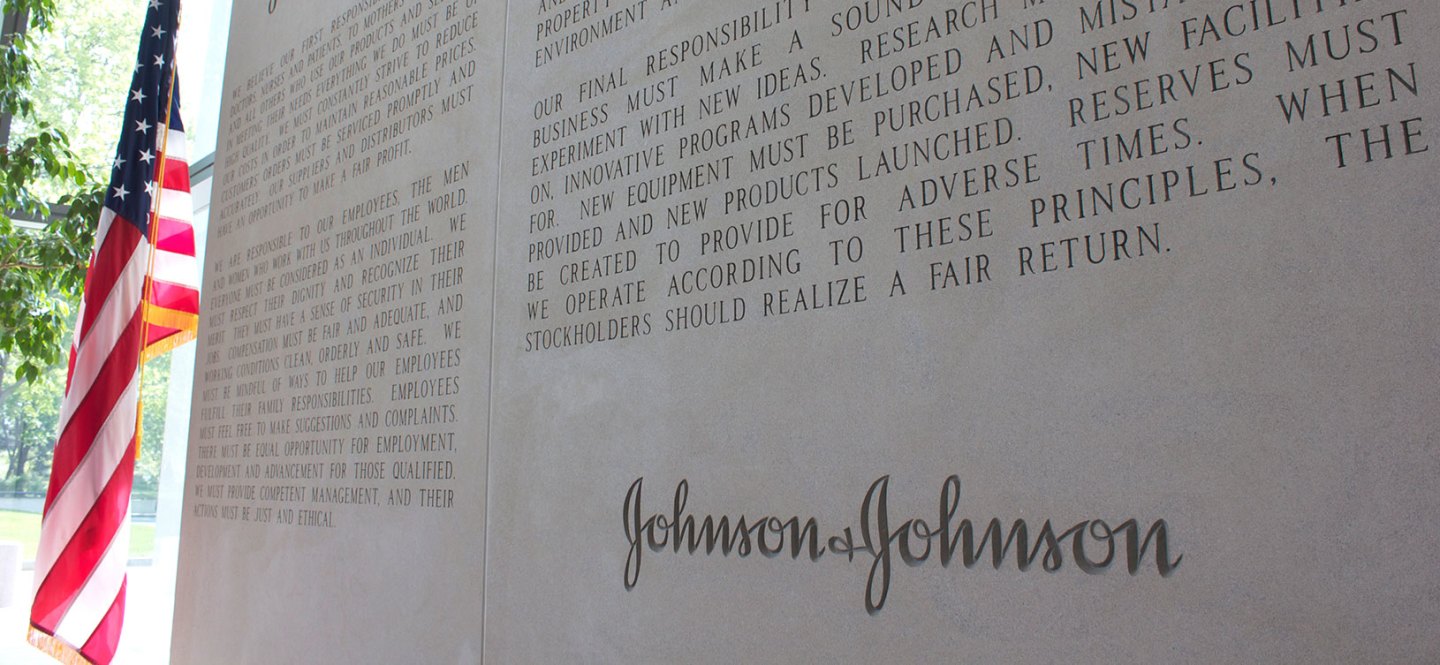 WE BELIEVE OUR FIRST RESPONSIBILITY
DOCTORS, NURSES AND PATIENTS, TO MOTHERS
AND ALL OTHERS WHO USE OUR PRODUCTS AND
IN MEETING THEIR NEEDS EVERYTHING WE DO MUST BE OF
HIGH QUALITY. WE MUST CONSTANTLY STRIVE TO REDUCE
OUR COSTS IN ORDER TO MAINTAIN REASONABLE PRICES.
CUSTOMERS' ORDERS MUST BE SERVICED PROMPTLY AND
ACCURATELY. OUR SUPPLIERS AND DISTRIBUTORS MUST
HAVE AN OPPORTUNITY TO MAKE A FAIR PROFIT.
WE ARE RESPONSIBLE TO OUR EMPLOYEES, THE MEN
AND WOMEN WHO WORK WITH US THROUGHOUT THE WORLD.
EVERYONE MUST BE CONSIDERED AS AN INDIVIDUAL. WE
MUST RESPECT THEIR DIGNITY AND RECOGNIZE THEIR
MERIT. THEY MUST HAVE A SENSE OF SECURITY IN THEIR
JOBS. COMPENSATION MUST BE FAIR AND ADEQUATE, AND
WORKING CONDITIONS CLEAN, ORDERLY AND SAFE. WE
MUST BE MINDFUL OF WAYS TO HELP OUR EMPLOYEES
FULFILL THEIR FAMILY RESPONSIBILITIES. EMPLOYEES
MUST FEEL FREE TO MAKE SUGGESTIONS AND COMPLAINTS.
THERE MUST BE EQUAL OPPORTUNITY FOR EMPLOYMENT,
DEVELOPMENT AND ADVANCEMENT FOR THOSE QUALIFIED.
WE MUST PROVIDE COMPETENT MANAGEMENT, AND THEIR
ACTIONS MUST BE JUST AND ETHICAL.
PROPERTY
ENVIRONMENT
OUR FINAL RESPONSIBILITY
BUSINESS MUST MAKE A SOUND
EXPERIMENT WITH NEW IDEAS. RESEARCH
ON, INNOVATIVE PROGRAMS DEVELOPED AND
FOR. NEW EQUIPMENT MUST BE PURCHASED, NEW FACILITIES
PROVIDED AND NEW PRODUCTS LAUNCHED. RESERVES MUST
BE CREATED TO PROVIDE FOR ADVERSE TIMES. WHEN
WE OPERATE ACCORDING TO THESE PRINCIPLES, THE
STOCKHOLDERS SHOULD REALIZE A FAIR RETURN.
Johnson & Johnson